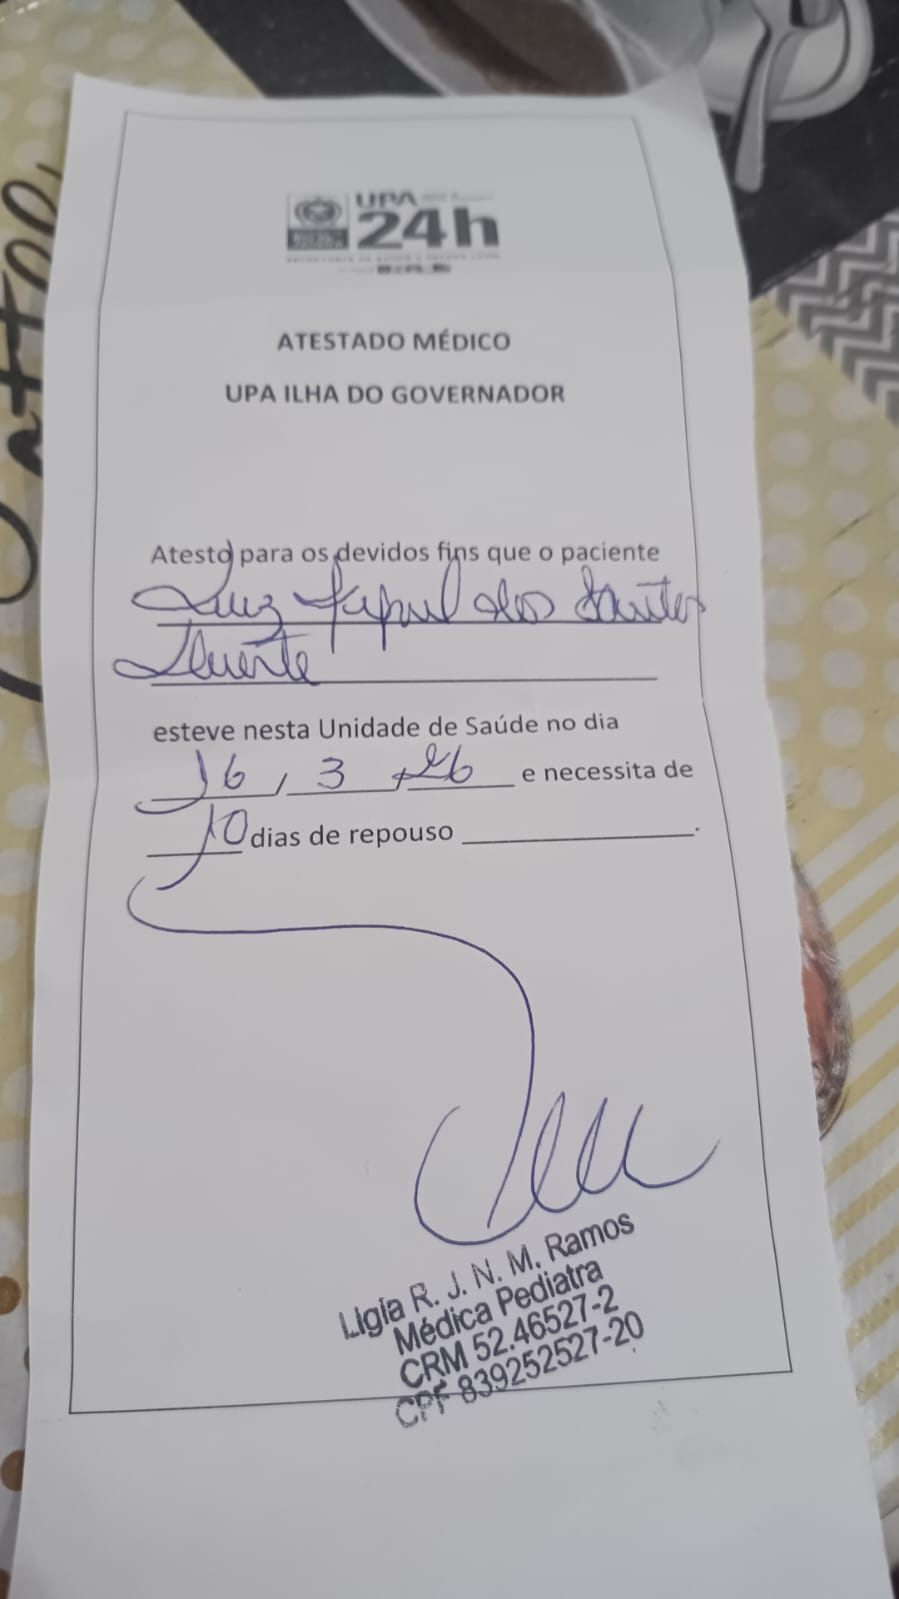 UPA
24h
ATESTADO MÉDICO
UPA ILHA DO GOVERNADOR
Atesto para os devidos fins que o paciente
Luiz dos Santos
esteve nesta Unidade de Saúde no dia
16 / 3 / 26 e necessita de
10 dias de repouso
Ligia R. J. N. M. Ramos
Médica Pediatra
CRM 52.46527-2
CPF 839252527-20